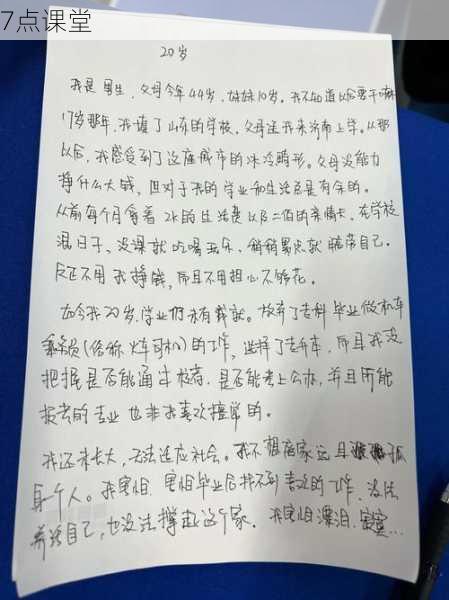 7点课堂
20岁
我是男生，父母今年44岁，妹妹10岁。我不知道以后要干嘛
17岁那年，我填了山东的学校，父母送我来济南上学。从那
以后，我感受到了这座城市的冰冷畸形。父母没能力
挣什么大钱，但对于我的学业和生活总是有余的。
从前每个月拿着2k的生活费以及二佰的亲情卡，在学校
混日子，没课就吃喝玩乐，稍稍累点就犒劳自己。
反正不用我挣钱，而且不用担心不够花。
如今我20岁，学业仍未有成就。放弃了专科毕业做机车
乘务员（俗称火车司机）的工作，选择了专升本，而且我没
把握是否能通过校荐，是否能考上公办，并且所能
报考的专业也非我喜欢擅长的。
我还未长大，无法适应社会。我不想离家远且孤
身一个人。我害怕，害怕毕业后找不到喜欢的工作，没法
养活自己，也没法撑起这个家。我害怕漂泊，